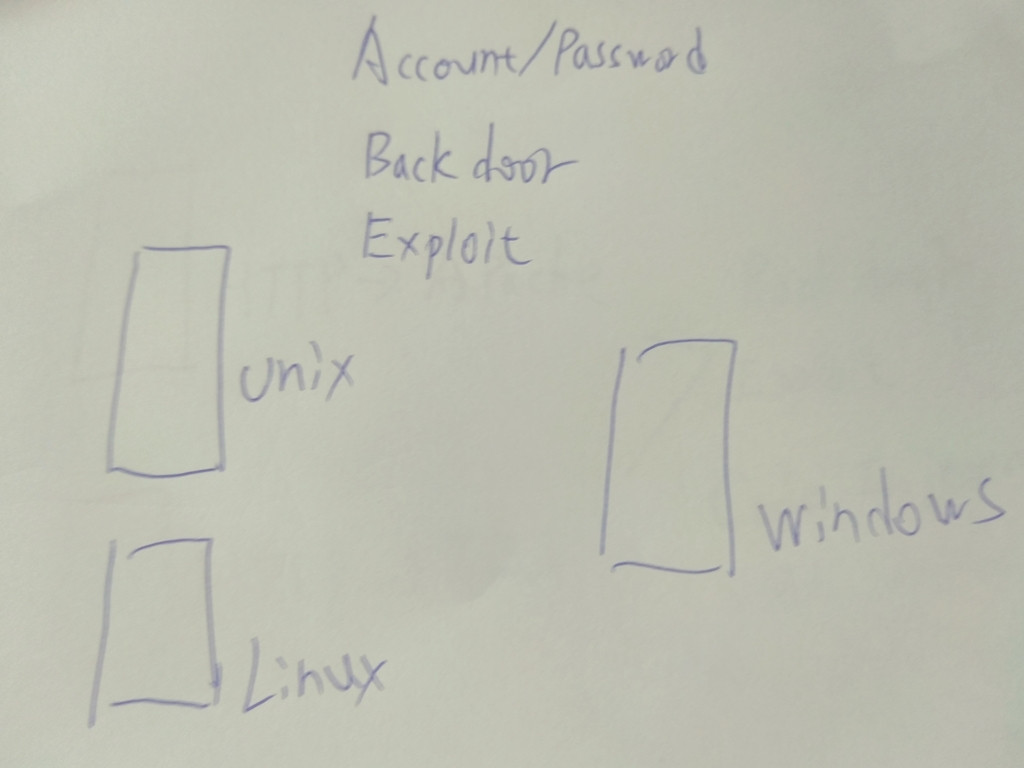 Account/Password
Back door
Exploit
unix
windows
Linux